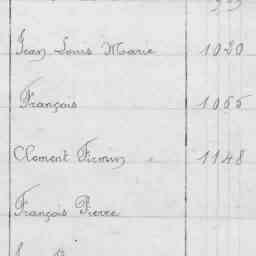 Jean Louis Marie 1020
François 1055
Clement Firmin 1148
François Pierre